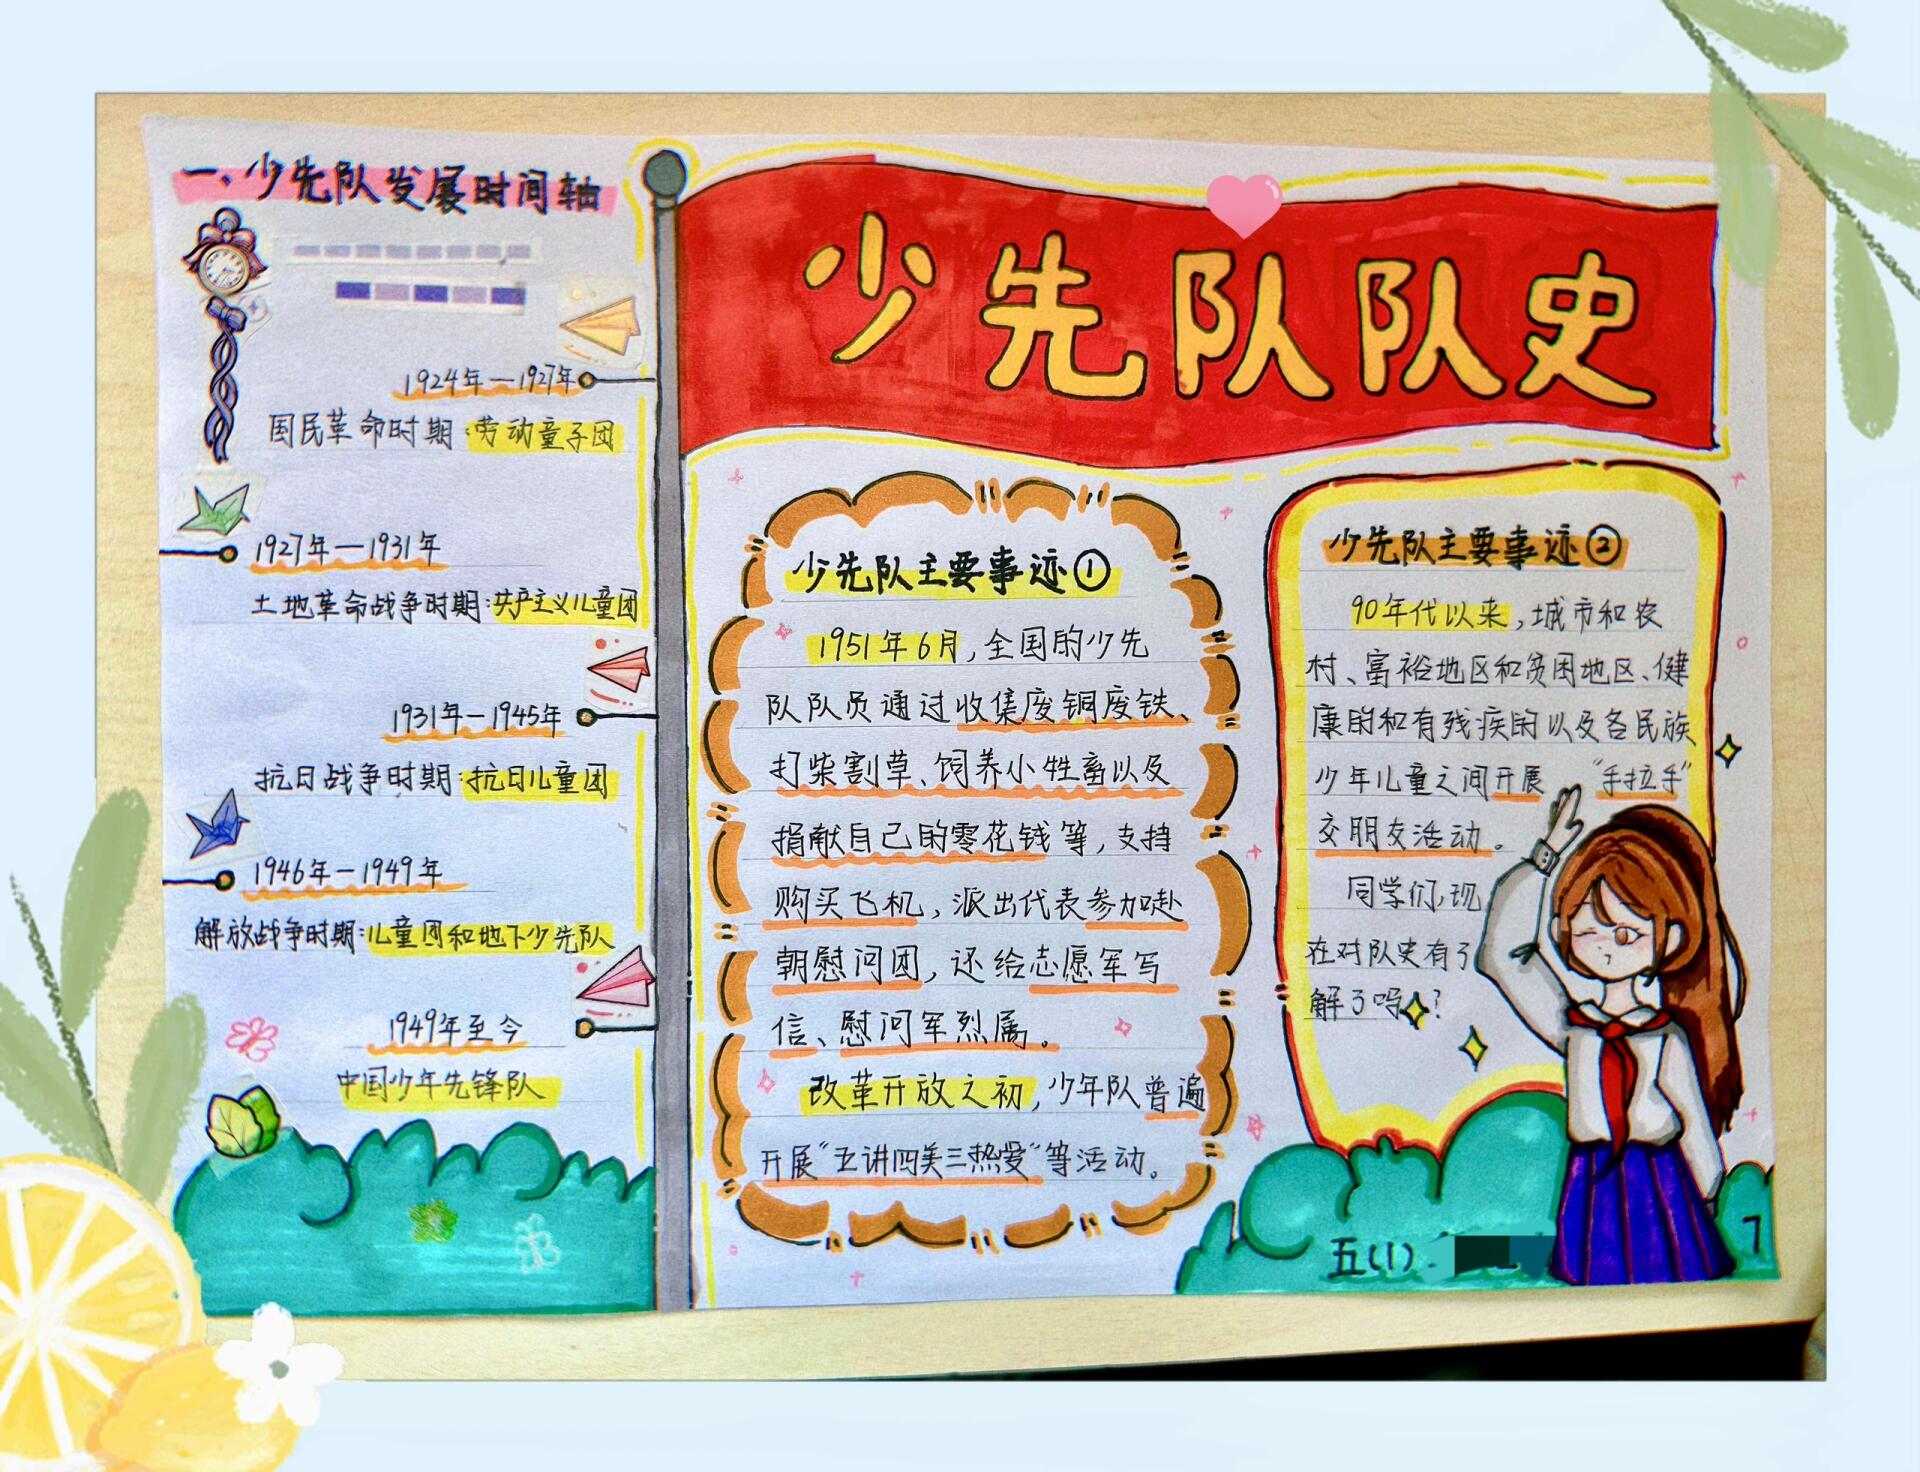 一、少先队发展时间轴
1924年—1927年
国民革命时期:劳动童子团
1927年—1931年
土地革命战争时期:共产主义儿童团
1931年—1945年
抗日战争时期:抗日儿童团
1946年—1949年
解放战争时期:儿童团和地下少先队
1949年至今
中国少年先锋队
少先队队史
少先队主要事迹①
1951年6月,全国的少先
队队员通过收集废铜废铁、
打柴割草、饲养小牲畜以及
捐献自己的零花钱等,支持
购买飞机,派出代表参加赴
朝慰问团,还给志愿军写
信、慰问军烈属。
改革开放之初,少年队普遍
开展"五讲四美三热爱"等活动。
少先队主要事迹②
90年代以来,城市和农
村、富裕地区和贫困地区、健
康的和有残疾的以及各民族
少年儿童之间开展"手拉手"
交朋友活动。
同学们,现
在对队史有了
解了吗?
五(1)